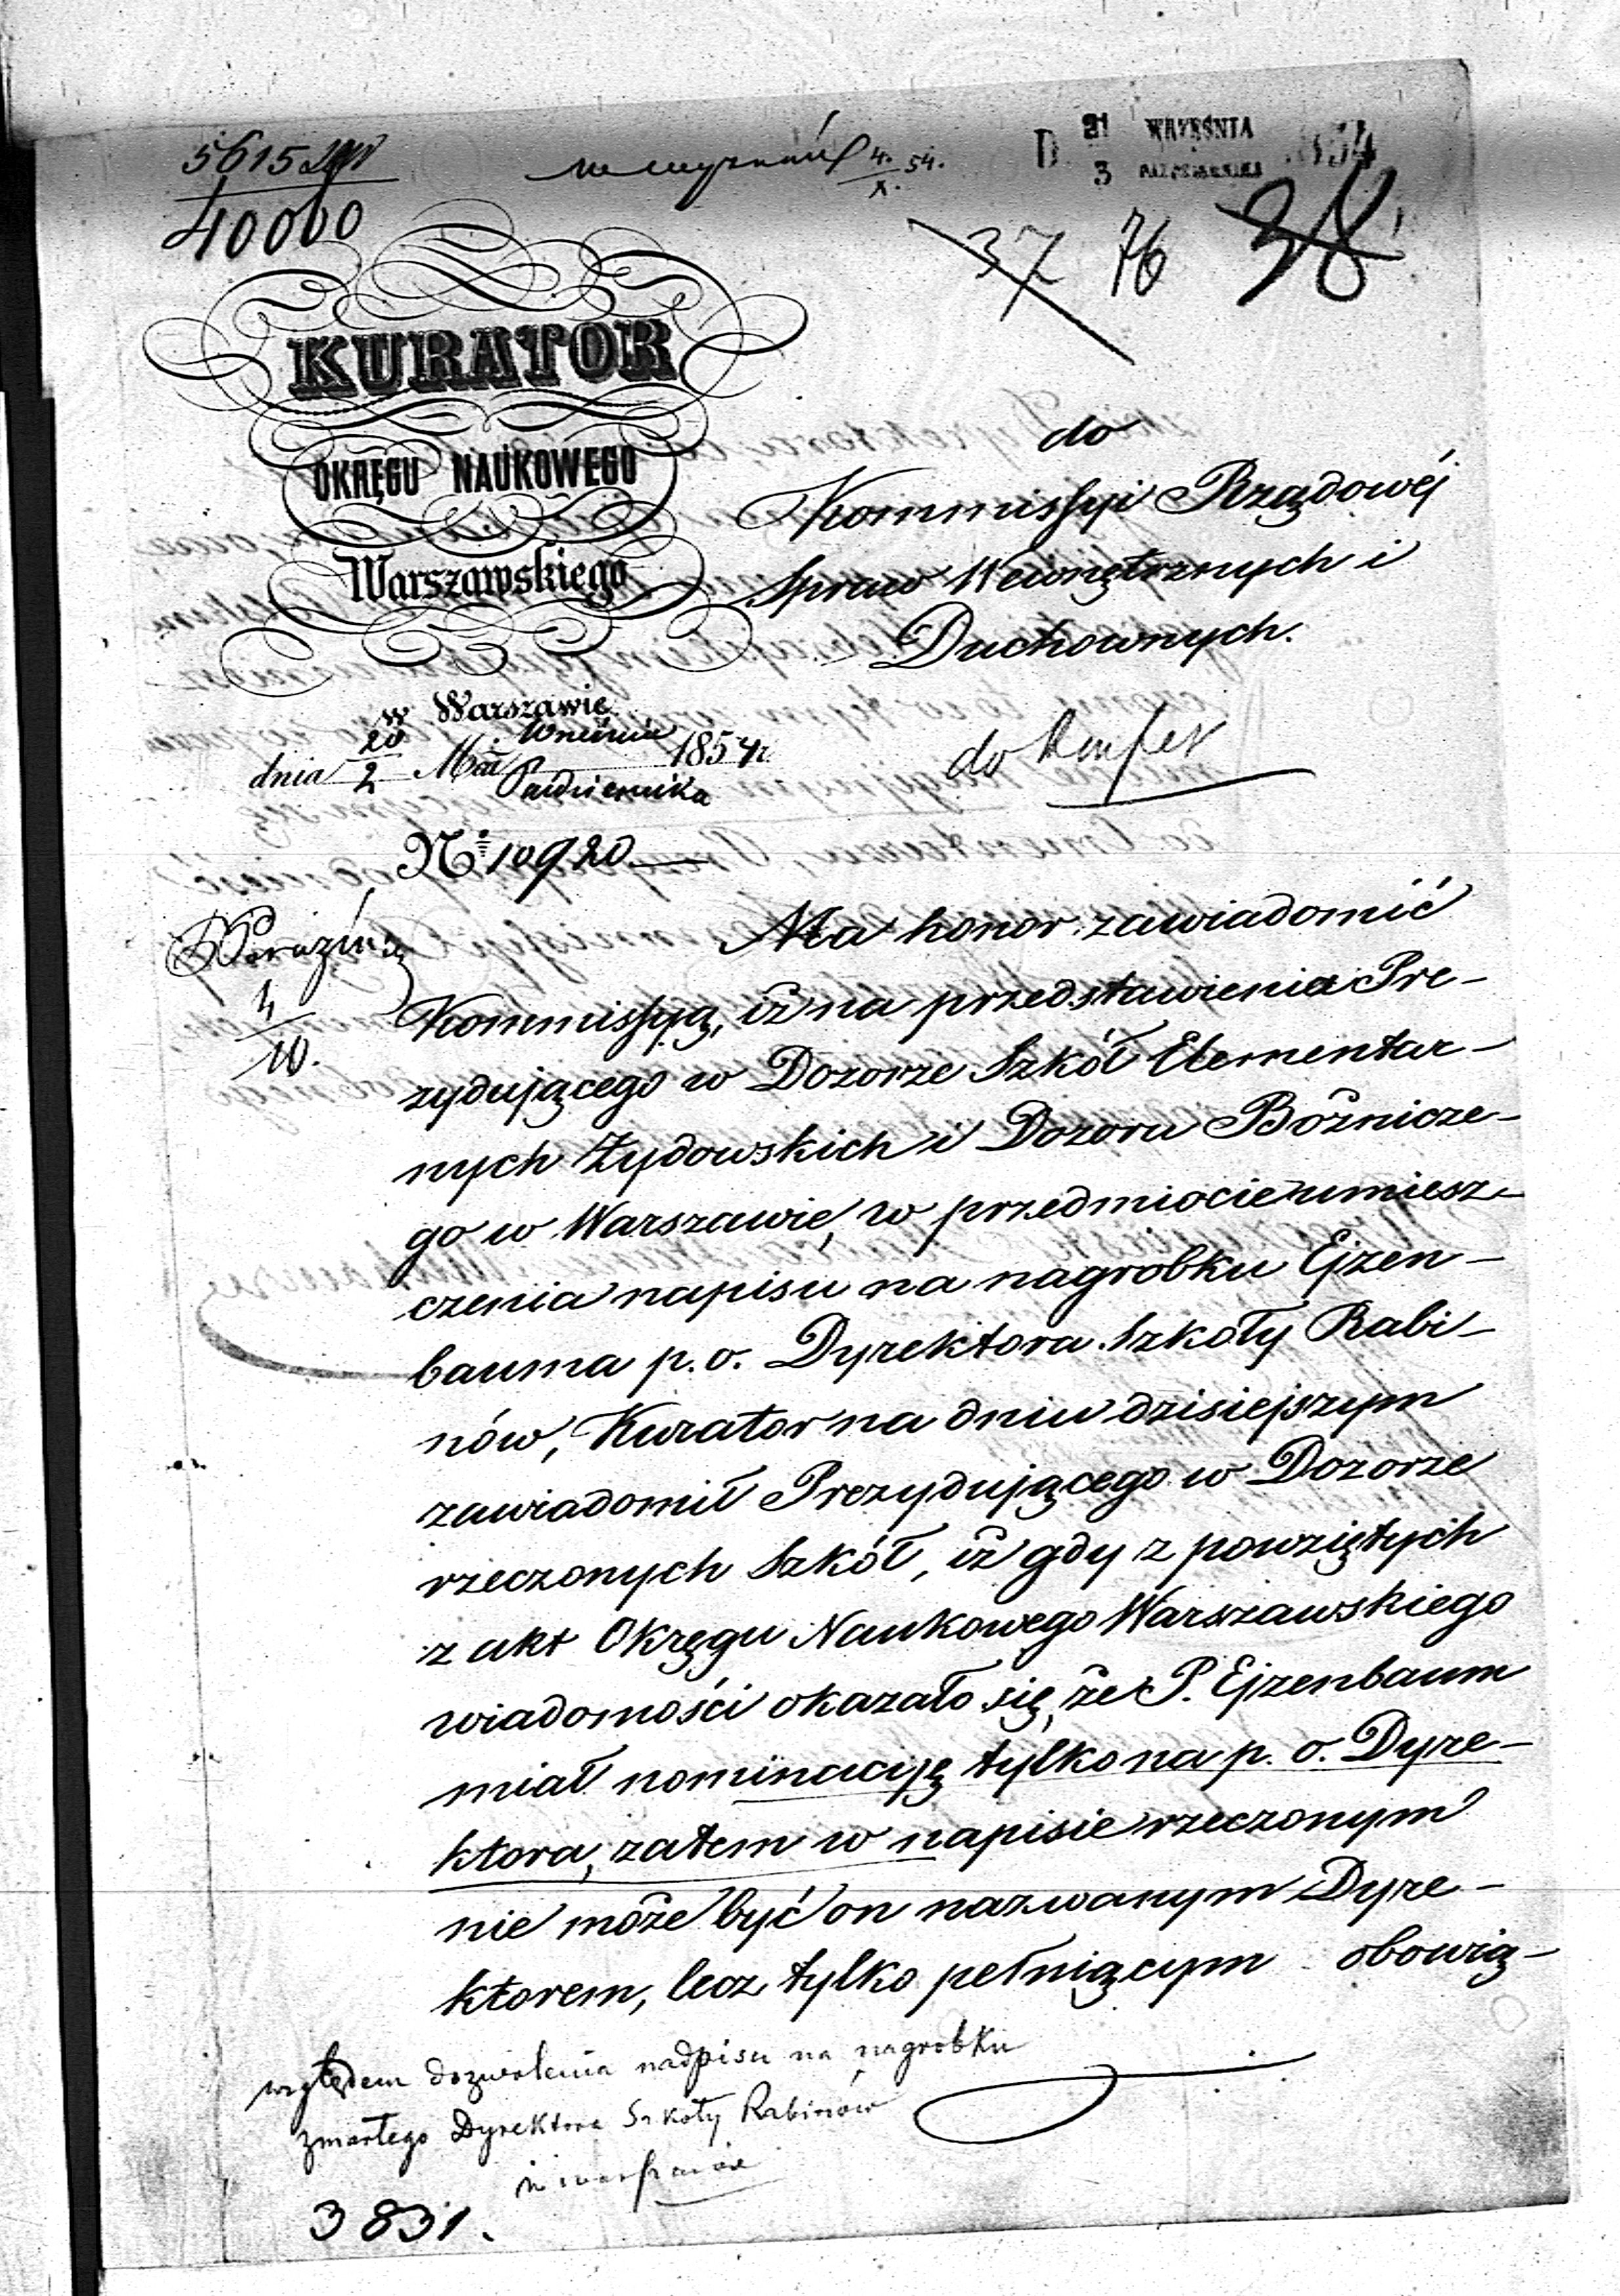 5615
40000
4. 54.
X.
D 21 WRZEŚNIA 1854
3 PAŹDZIERNIKA
37 76 38
KURATOR
OKRĘGU NAUKOWEGO
Warszawskiego
w Warszawie
dnia 20/2 M̃ca Września/Października 1854 r.
№ 10920
do
Kommissyi Rządowéj
Spraw Wewnętrznych i
Duchownych.
do
4
10.
Ma honor zawiadomić
Kommissyą, iż na przedstawienia Pre-
zydującego w Dozorze Szkół Elementar-
nych Żydowskich i Dozoru Bożnicze-
go w Warszawie, w przedmiocie umiesz-
czenia napisu na nagrobku Ejzen-
bauma p. o. Dyrektora Szkoły Rabi-
nów, Kurator na dniu dzisiejszym
zawiadomił Prezydującego w Dozorze
rzeczonych Szkół, iż gdy z powziętych
z akt Okręgu Naukowego Warszawskiego
wiadomości okazało się, że P. Ejzenbaum
miał nominacyję tylko na p. o. Dyre-
ktora, zatem w napisie rzeczonym
nie może być on nazwanym Dyre-
ktorem, lecz tylko pełniącym obowią-
względem dozwolenia nadpisu na nagrobku
zmarłego Dyrektora Szkoły Rabinów
w Warszawie
3831.